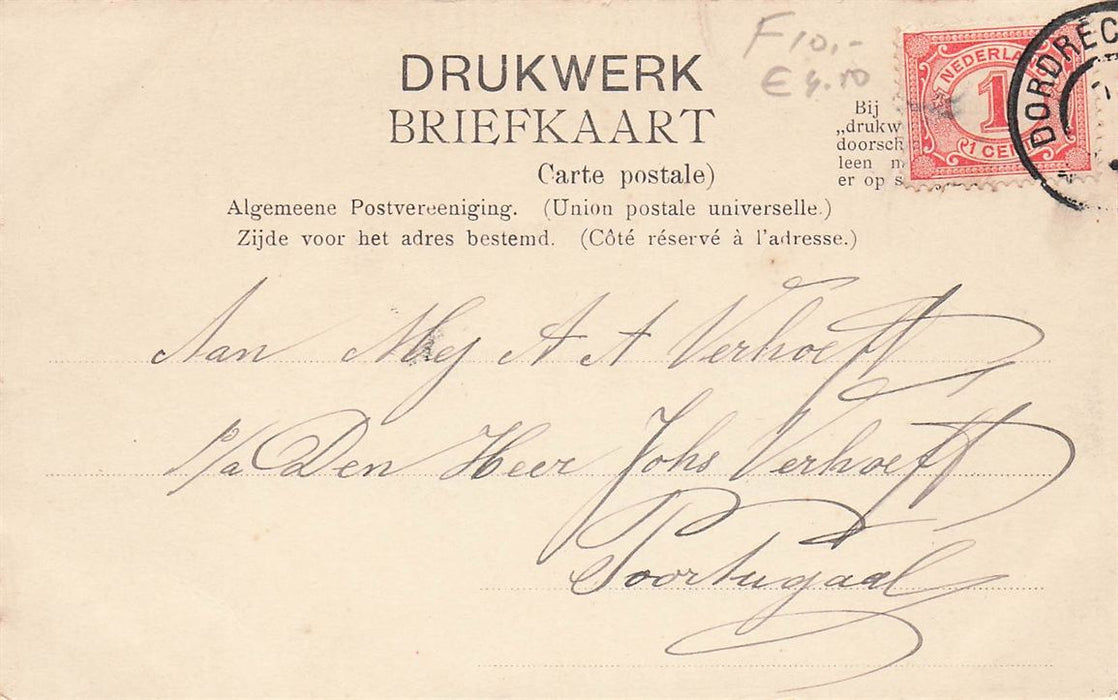 F 10,-
€ 4.50
DRUKWERK
BRIEFKAART
Carte postale)
Algemeene Postvereeniging. (Union postale universelle.)
Zijde voor het adres bestemd. (Côté réservé à l'adresse.)
Bij
„drukw
doorsch
leen
er op s
NEDERLA
1
1 CENT
DORDREC
Aan Mej A A Verhoeff
p/a Den Heer Johs Verhoeff
Poortugaal